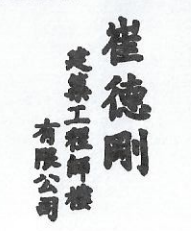 崔德剛
建築工程師樓
有限公司